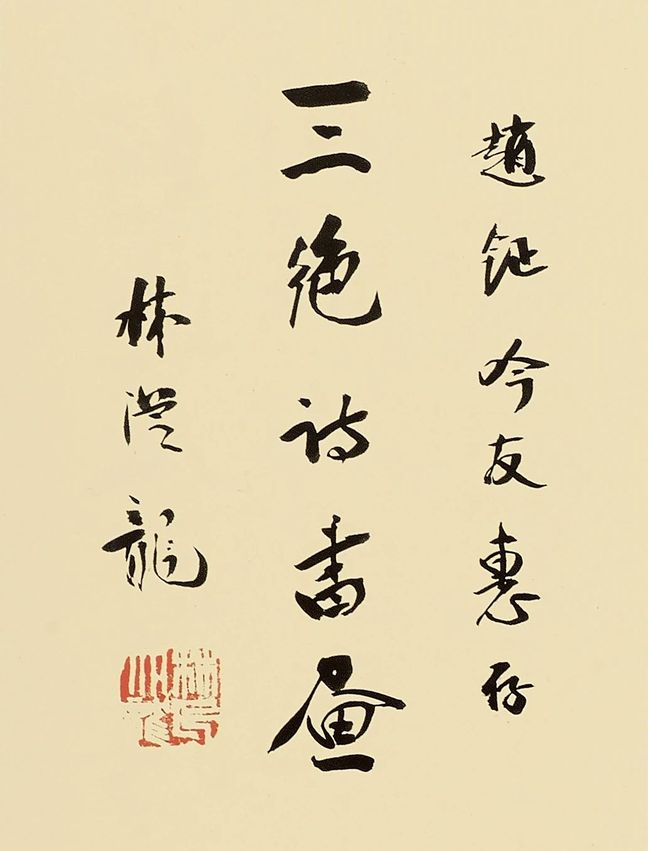 趙 吟友惠存
三絕詩書畫
林從龍